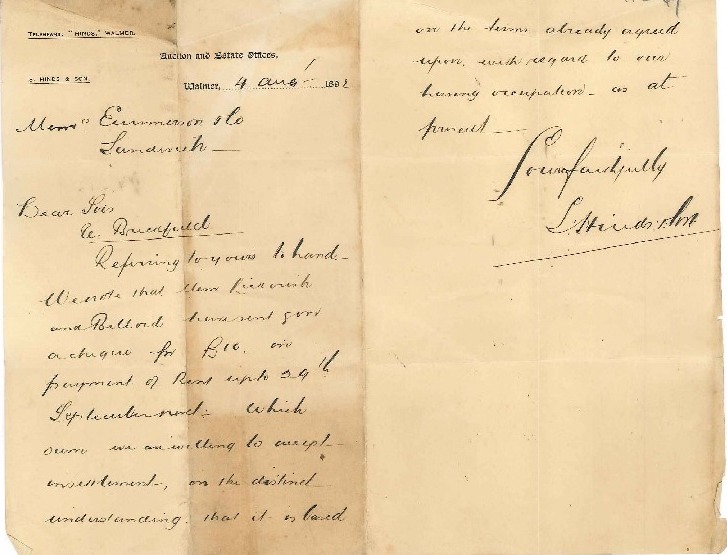 TELEGRAMS, "HINDS," WALMER.
Auction and Estate Offices,
HINDS & SON.
Walmer, 4 Aug 189
Messrs Emmerson & Co
Sandwich
Dear Sirs
re
Referring to yours to hand
We note that Messrs
and have sent you
a cheque for £10, in
payment of Rent up to 29th
September next: which
sum we are willing to accept
in settlement, on the distinct
understanding, that it is based
on the terms already agreed
upon, with regard to our
having occupation as at
present
Yours faithfully
Hinds & Son